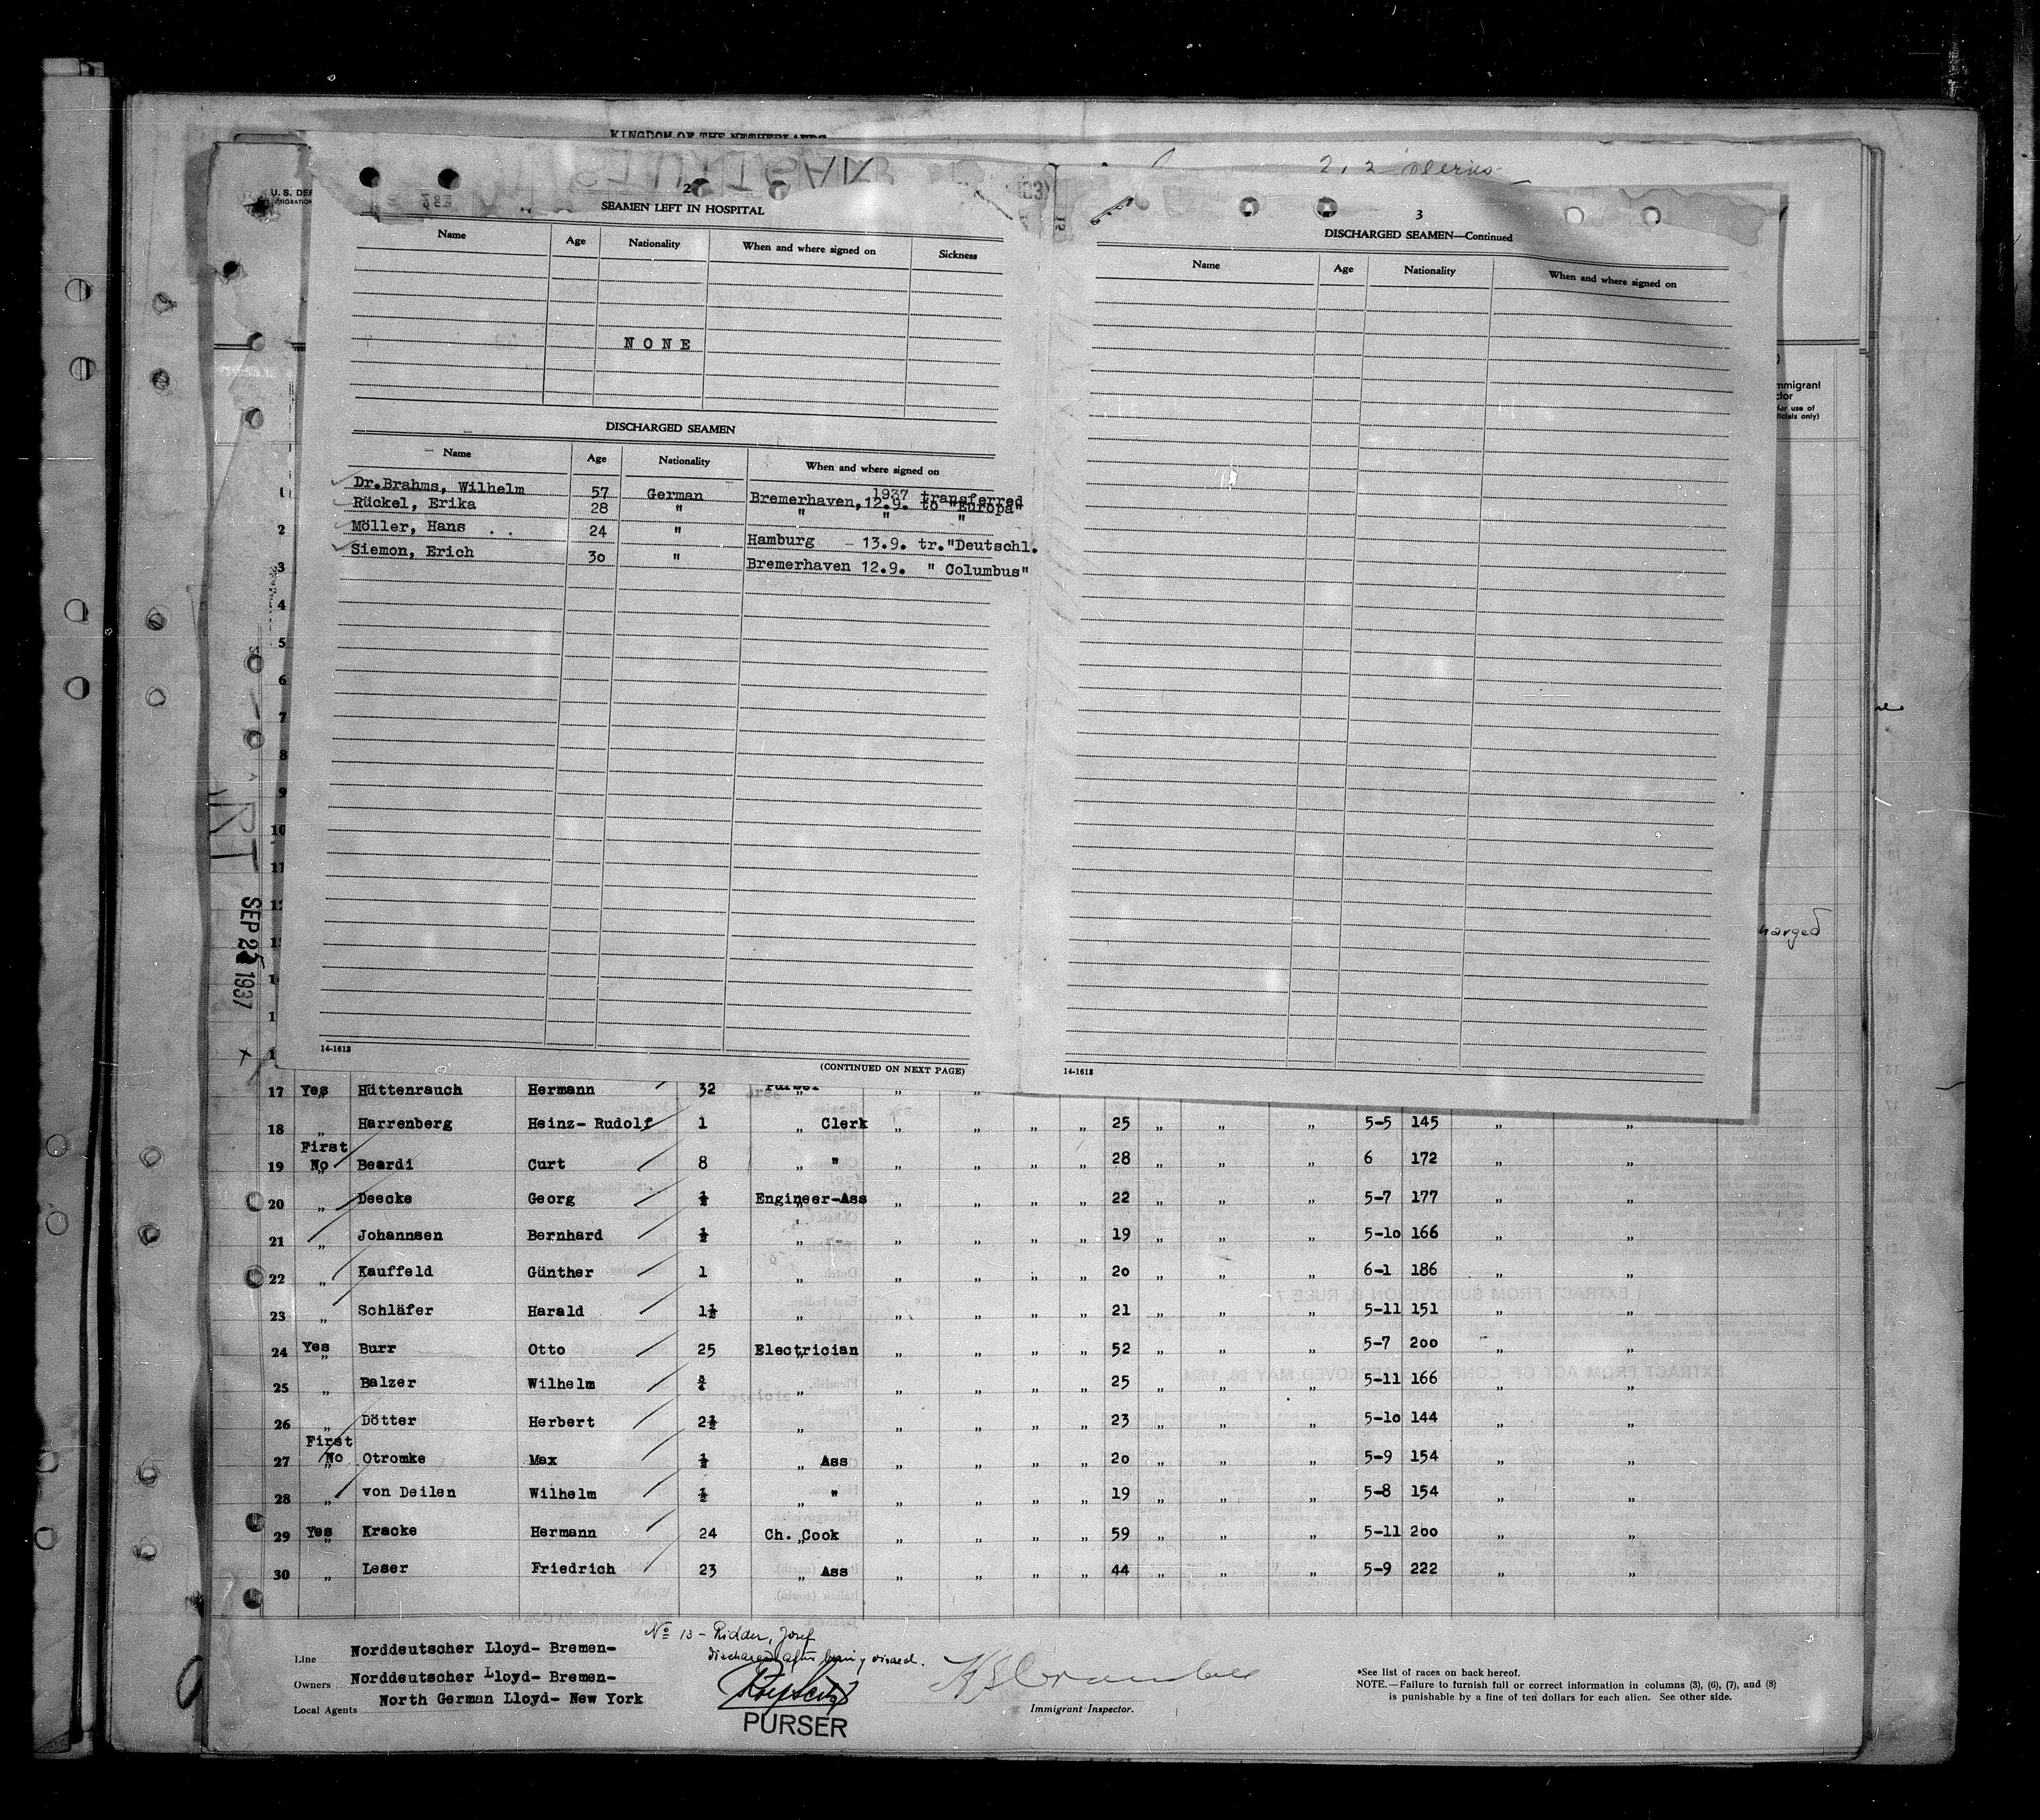 KINGDOM OF THE NETHERLANDS
U. S. DEP
2
SEAMEN LEFT IN HOSPITAL
Name Age Nationality When and where signed on Sickness
NONE
DISCHARGED SEAMEN
Name Age Nationality When and where signed on
Dr.Brahms, Wilhelm 57 German Bremerhaven,12.9. 1937 transferred to "Europa"
Rückel, Erika 28 " " " "
Möller, Hans . . 24 " Hamburg – 13.9. tr."Deutschl.
Siemon, Erich 30 " Bremerhaven 12.9. " Columbus"
14-1613
(CONTINUED ON NEXT PAGE)
3
DISCHARGED SEAMEN—Continued
Name Age Nationality When and where signed on
14-1613
mmigrant
for use of
ficials only)
harged
1
2
3
4
5
6
7
8
9
10
11
SEP 25 1937
17 Yes Hüttenrauch Hermann 32 Purser
18 " Harrenberg Heinz- Rudolf 1 " Clerk " " " " 25 " " " 5-5 145 " "
19 First No Beardi Curt 8 " " " " " " 28 " " " 6 172 " "
20 " Deecke Georg ½ Engineer-Ass " " " " 22 " " " 5-7 177 " "
21 " Johannsen Bernhard ½ " " " " " 19 " " " 5-10 166 " "
22 " Kauffeld Günther 1 " " " " " 20 " " " 6-1 186 " "
23 " Schläfer Harald 1½ " " " " " 21 " " " 5-11 151 " "
24 Yes Burr Otto 25 Electrician " " " " 52 " " " 5-7 200 " "
25 " Balzer Wilhelm " " " " " 25 " " " 5-11 166 " "
26 " Dötter Herbert 2½ " " " " " 23 " " " 5-10 144 " "
27 First No Otromke Max ½ " Ass " " " " 20 " " " 5-9 154 " "
28 " von Deilen Wilhelm ½ " " " " " " 19 " " " 5-8 154 " "
29 Yes Kracke Hermann 24 Ch. Cook " " " " 59 " " " 5-11 200 " "
30 " Leser Friedrich 23 " Ass " " " " 44 " " " 5-9 222 " "
No 13 - Ridder, Josef
discharged after being visaed.
Line Norddeutscher Lloyd- Bremen-
Owners Norddeutscher Lloyd- Bremen-
Local Agents North German Lloyd- New York
PURSER
Immigrant Inspector.
*See list of races on back hereof.
NOTE.—Failure to furnish full or correct information in columns (3), (6), (7), and (8)
is punishable by a fine of ten dollars for each alien. See other side.